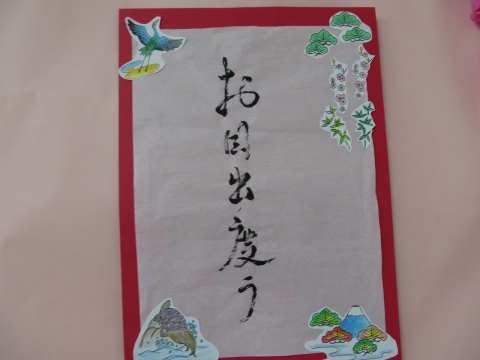 お目出度う